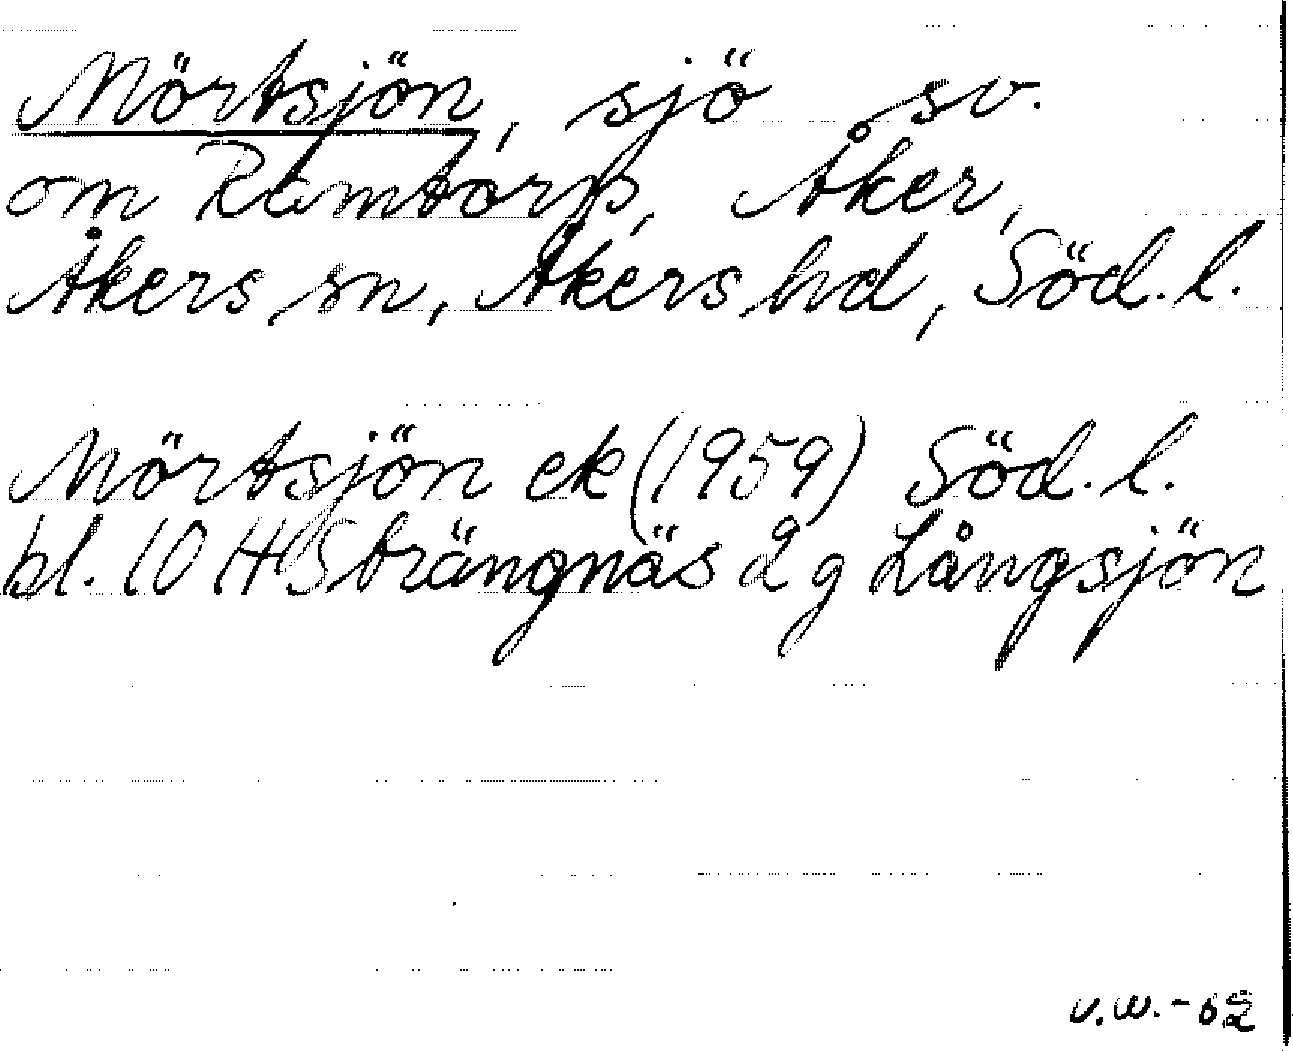 Mörtsjön, sjö sv.
om Ramtorp, Åker,
Åkers sn, Åkers hd, Söd. l.
Mörtsjön ek (1959) Söd. l.
bl. 10 H Strängnäs 2 g Långsjön
v.w. - 62